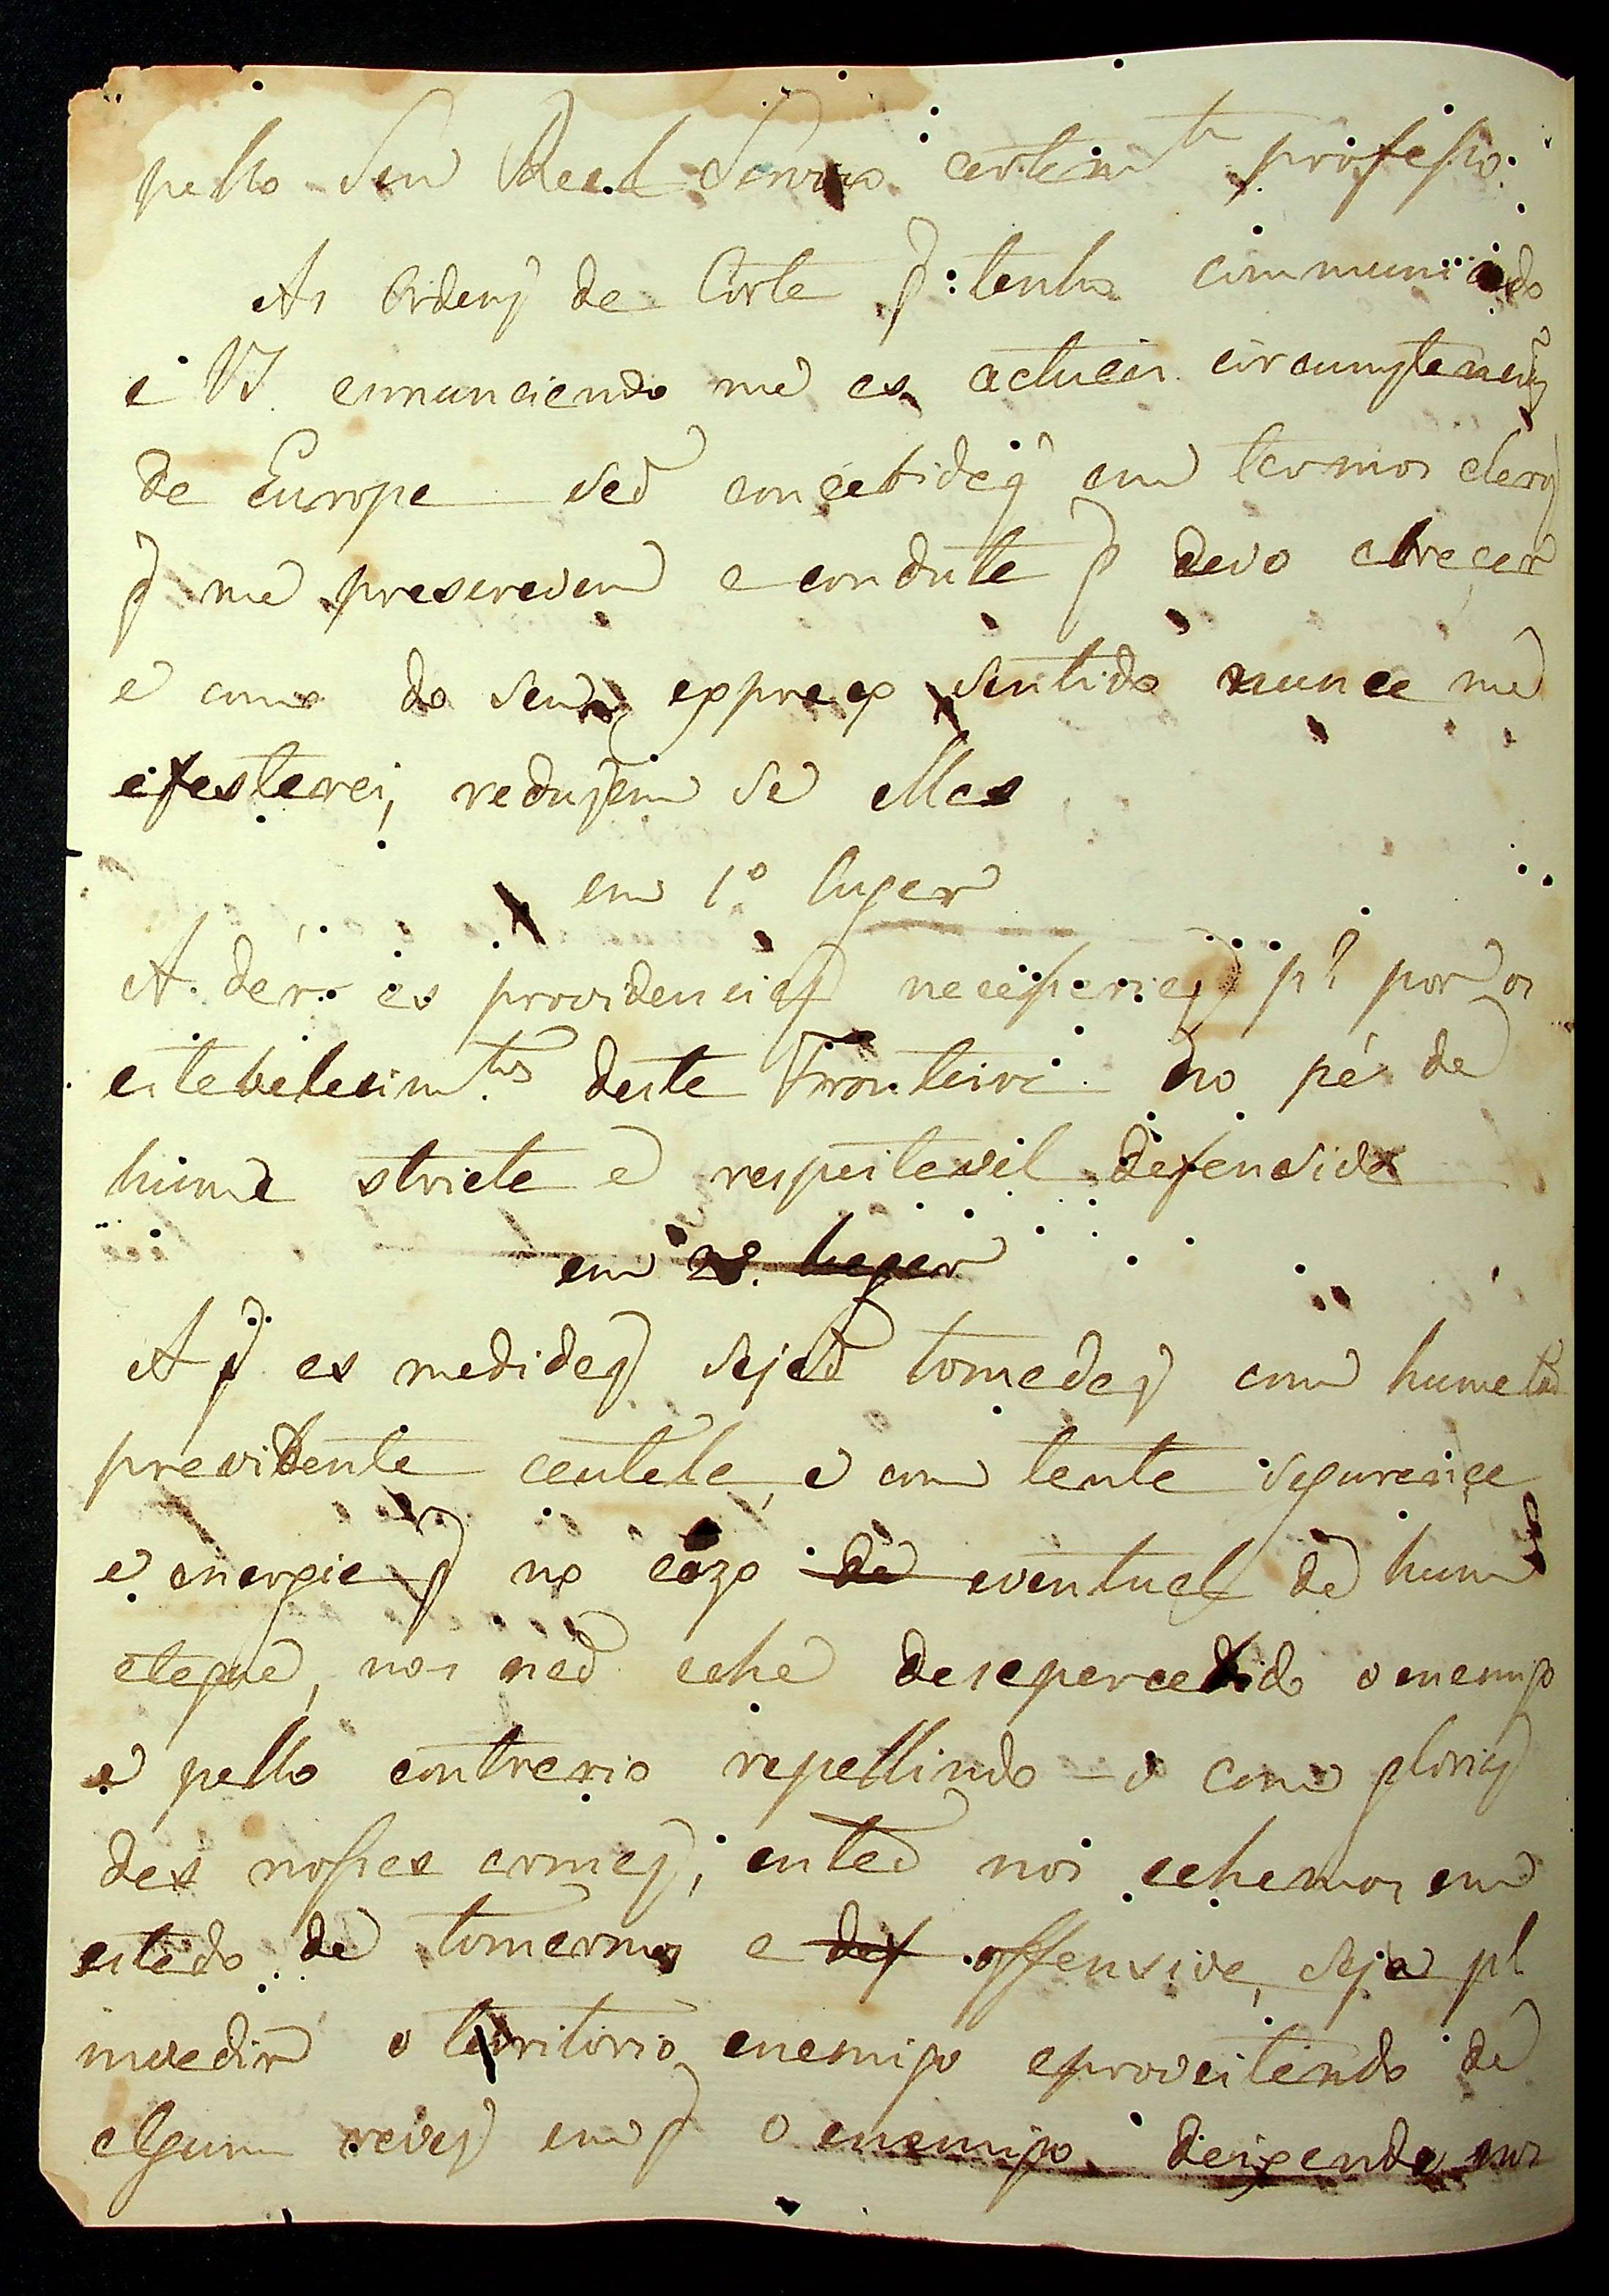 pello Seu Real Serviço certam.te professo.
As Ordens da Corte q̃ tenho communicado
a VS. ennunciando me as actuais circumstancias
da Europa saõ concebidas em termos claros
q̃ me prescrevem a conduta q̃ devo abraçar
e como do seu expreço sentido nunca me
afastarei, reduzem se ellas
em 1.º lugar
A dár as providencias necessarias p.ª por os
estabelecim.tos desta Fronteira no pé de
huma stricta e respeitavel defensiva
em 2.º lugar
A q̃ as medidas sejaõ tomadas com huma taõ
previdente cautela, e com tanta segurança
e energia q̃ no cazo de eventual de hum
ataque, nos naõ ache desapercebido o enemigo
e pello contrario repellindo-o com gloria
das nossas armas, entaõ nos achemos em
estado de tomarmos a def offensiva, seja p.ª
invadir o territorio enemigo aproveitando de
algum revez em q̃ o enemigo deixando nos